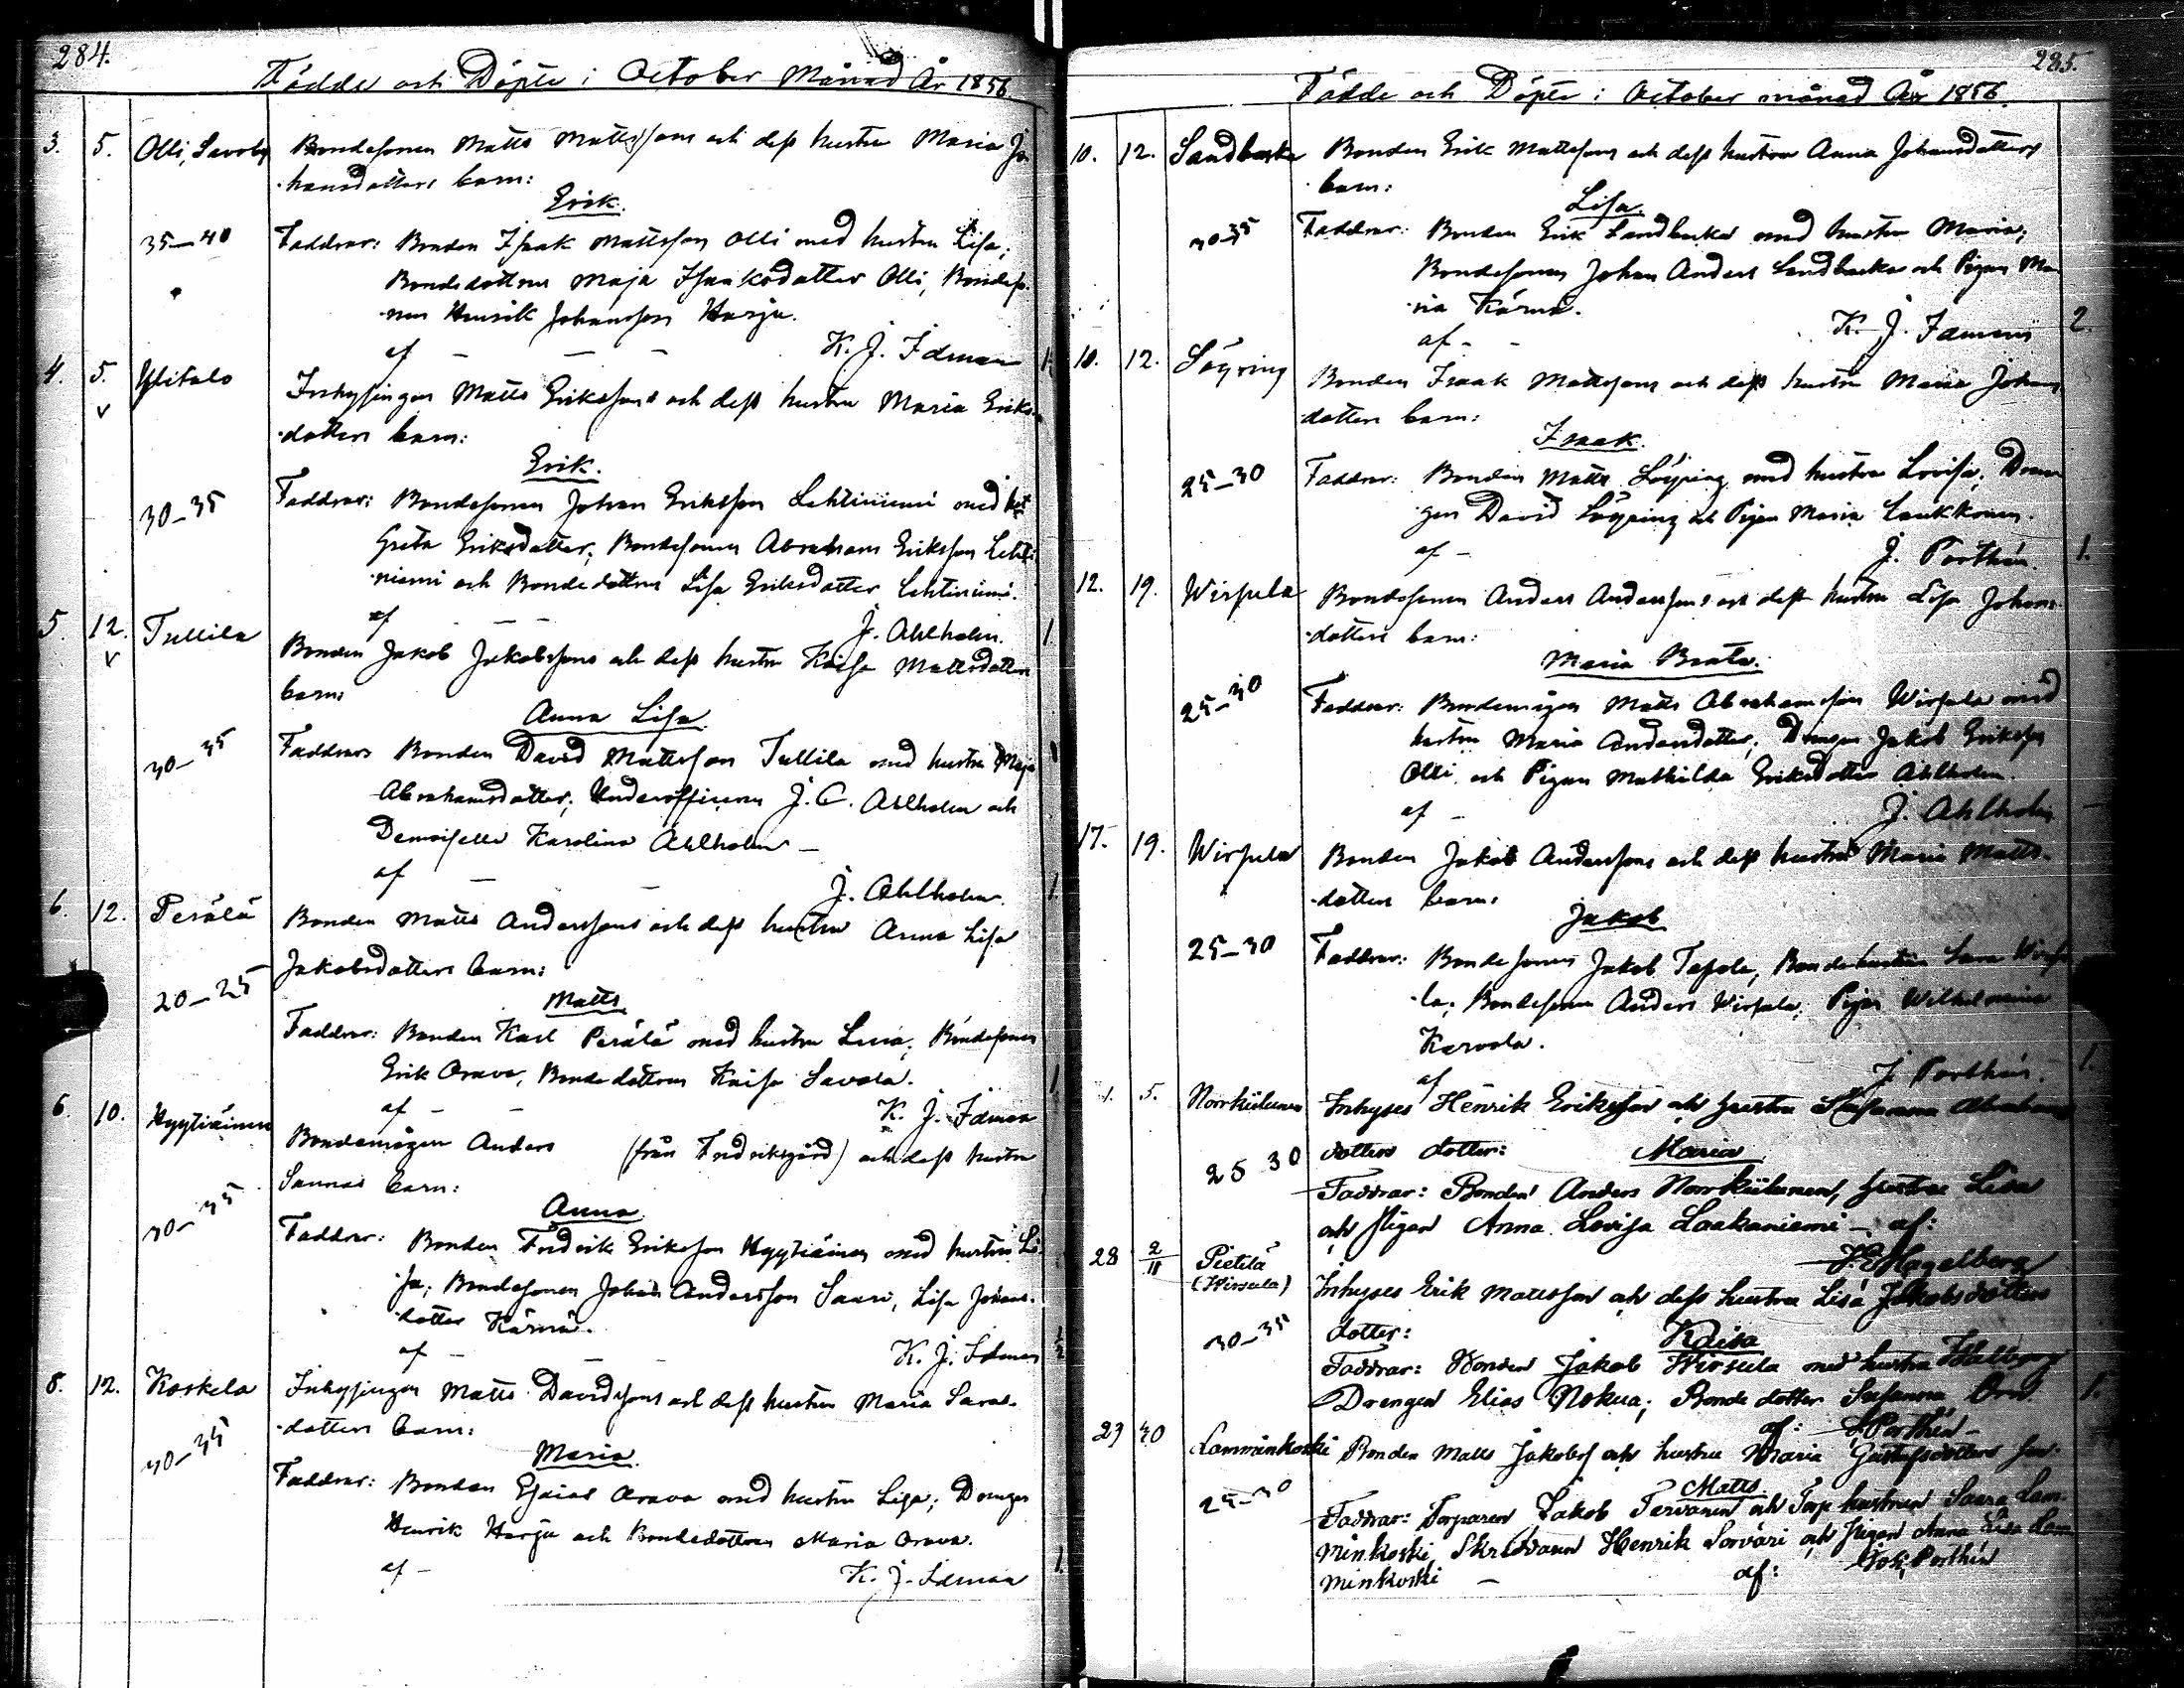 284.
Födde och Döpte i October Månad År 1856.
3. 5. Olli, Savoby Bondesonen Matts Mattssons och dess hustru Maria Jo-
hansdotters barn:
Erik.
35—40 Faddrar: Bonden Isaak Mattsson Olli med hustru Lisa;
Bondedottren Maja Isaaksdotter Olli, Bondeso-
nen Henrik Johansson Harju.
af — — — K. J. Idman 1.
4. 5. Ylitalo Inhysingen Matts Erikssons och dess hustru Maria Eriks-
v dotters barn:
Erik.
30—35 Faddrar: Bondesonen Johan Eriksson Lehtiniemi med
Greta Eriksdotter; Bondesonen Abraham Eriksson Lehti-
niemi och Bondedottren Lisa Eriksdotter Lehtiniemi.
af — — J. Ahlholm. 1.
5. 12. Tullila Bonden Jakob Jakobssons och dess hustru Kaisa Mattsdotters
v barn:
Anna Lisa.
30—35 Faddrar: Bonden David Mattsson Tullila med hustru Maja
Abrahamsdotter; Underofficeren J. C. Ahlholm och
Demoiselle Karolina Ahlholm —
af — — J. Ahlholm. 1.
6. 12. Perälä Bonden Matts Anderssons och dess hustru Anna Lisa
Jakobsdotters barn:
20—25 Matts.
Faddrar: Bonden Karl Perälä med hustru Lisa; Bondesonen
Erik Orava, Bondedottren Kaisa Savola. 1.
af — — K. J. Idman
6. 10. Hyytiäinen Bondemågen Anders (från Fredriksgård) och dess hustru
Sannas barn:
30—35 Anna.
Faddrar: Bonden Fredrik Eriksson Hyytiäinen med hustru Li-
sa; Bondesonen Johan Andersson Saari, Lisa Johans-
dotter Kärnä.
af — — K. J. Idman
8. 12. Koskela Inhysingen Matts Davidssons och dess hustru Maria Saras-
dotters barn:
30—35 Maria.
Faddrar: Bonden Esaias Orava med hustru Lisa; Drengen
Henrik Harju och Bondedottren Maria Orava.
af — K. J. Idman 1.
285.
Födde och Döpte i October månad År 1856.
10. 12. Sandbacka Bonden Erik Mattssons och dess hustru Anna Johansdotters
barn:
Lisa.
30—35 Faddrar: Bonden Erik Sandbacka med hustru Maria;
Bondesonen Johan Anders Sandbacka och Pigan Ma-
ria Kärnä.
af — — K. J. Idman 2.
10. 12. Löyring Bonden Isaak Mattssons och dess hustru Maria Johans-
dotters barn:
Isaak.
25—30 Faddrar: Bonden Matts Löyring med hustru Lovisa; Dren-
gen David Löyring och Pigan Maria Laukkonen.
af — J. Porthén. 1.
12. 19. Wirsula Bondesonen Anders Anderssons och dess hustru Lisa Johans-
dotters barn:
Maria Beata.
25—30 Faddrar: Bondemågen Matts Abrahamsson Wirsula med
hustru Maria Andersdotter, Drengen Jakob Eriksson
Olli och Pigan Mathilda Eriksdotter Ahlholm.
af — J. Ahlholm —
17. 19. Wirsula Bonden Jakob Anderssons och dess hustru Maria Matts-
dotters barn:
Jakob
25—30 Faddrar: Bondesonen Jakob Tapola, Bondehustrun Sara Wirsu-
la; Bondesonen Anders Wirsula; Pigan Wilhelmina
Karvola.
af J. Porthén. 1.
1. 5. Norrkiilunen Inhyses Henrik Eriksson och hustru Susanna Abrahams-
25 30 dotters dotter: Maria
Faddrar: Bonden Anders Norrkiilunen, hustru Lisa
och Pigan Anna Lovisa Laakaniemi — af:
Hagelberg
28 2/11 Pietilä (Wirsula) Inhyses Erik Mattsson och dess hustru Lisa Jakobsdotters
30—35 dotter: Kaisa
Faddrar: Bonden Jakob Wirsula med hustru Wallborg
Drengen Elias Nokua; Bonde dotter Susanna Ora 1.
af: J Porthén —
29 30 Lamminkoski Bonden Matts Jakobss och hustru Maria Gustafsdotters son:
25—30 Matts
Faddrar: Torparen Jakob Tervanen och Torp hustrun Saara Lam-
minkoski, Skräddaren Henrik Sorväri och Pigan Anna Lisa Lam-
minkoski — af: Joh. Porthén